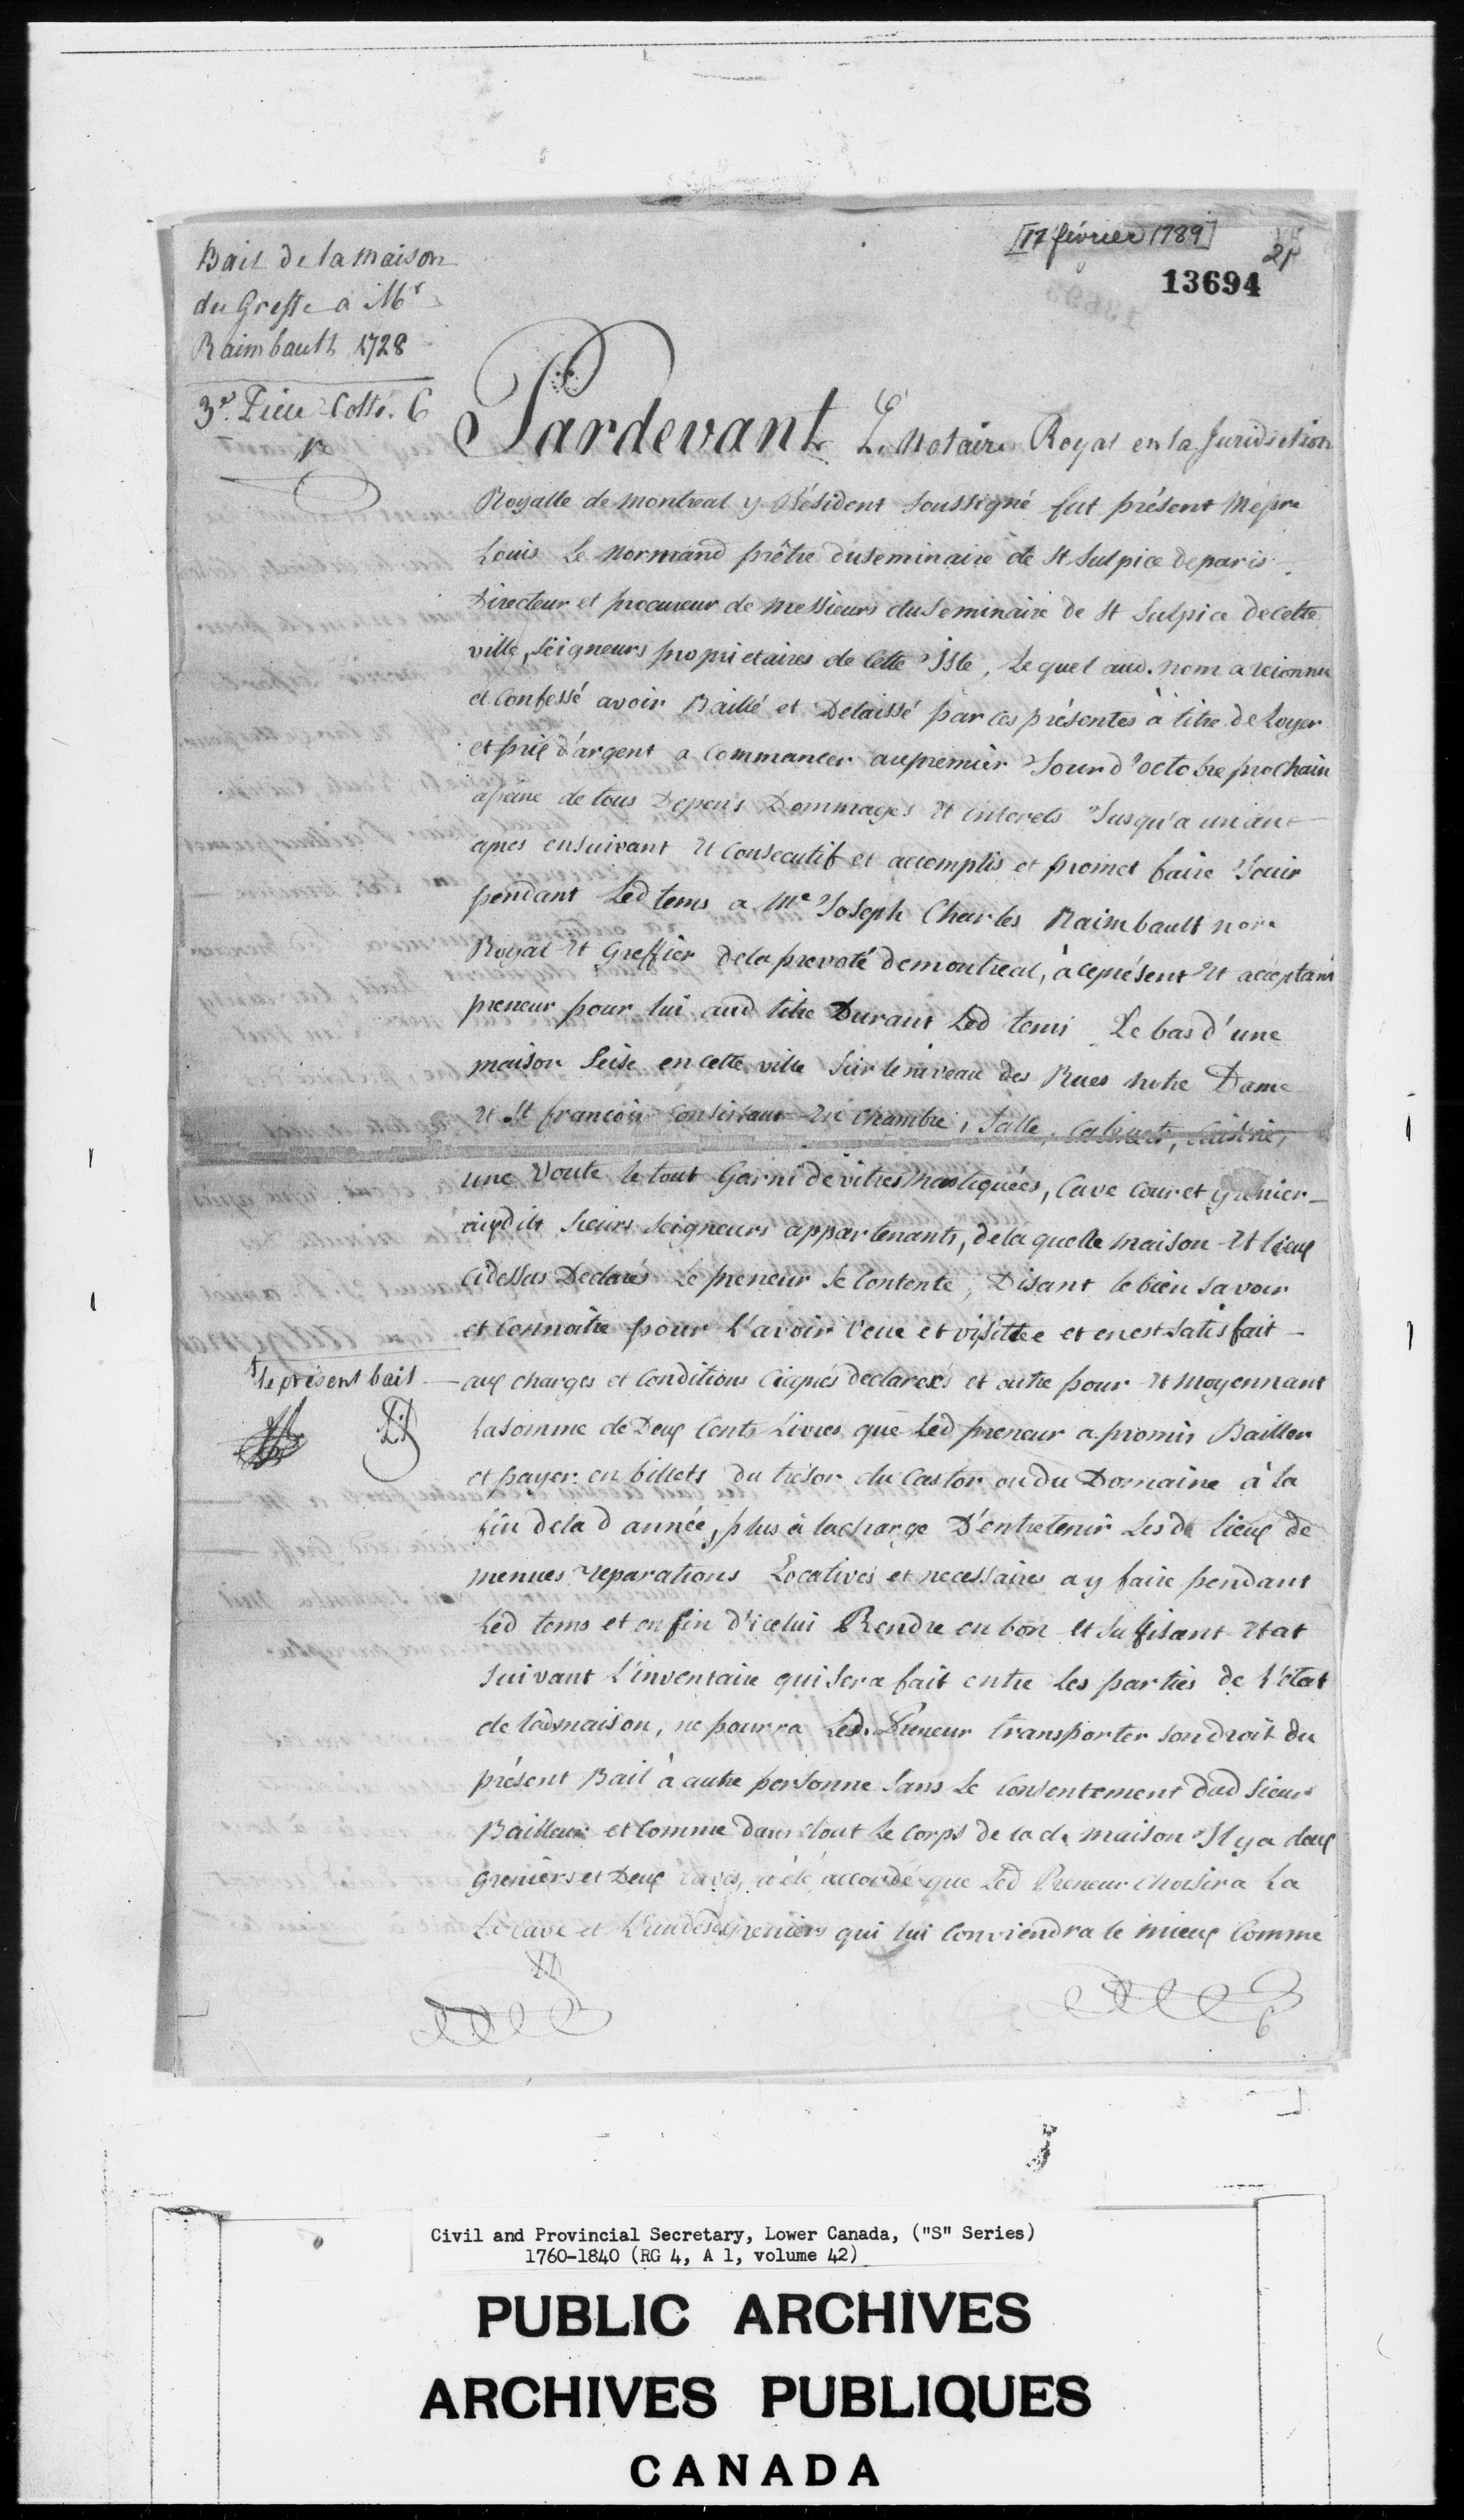 [17 février 1789]
21
13694
Bail de la maison
du Greffe a Mr
Raimbault 1728
3e. Piece Cotté. C
Pardevant Le Notaire Royal en la Jurisdiction
Royalle de montreal y Résident soussigné fut présent
Louis Le Normand prêtre du seminaire de St Sulpice de paris
Directeur et procureur de messieurs du Seminaire de St Sulpice de cette
ville, seigneurs proprietaires de cette Isle, Lequel aud. nom a reconnu
et Confessé avoir Baillé et Delaissé par ces présentes à titre de Loyer
et prix d'argent a Commancer au premier Jour d'octobre prochain
a peine de tous Depens Dommages et interets Jusqu'a un an
apres ensuivant et Consecutif et accomplis et promet faire Jouir
pendant Led tems a Me Joseph Charles Raimbault nore
Royal et Greffier de la prevoté de montreal, à ce présent et acceptant
preneur pour lui aud titre Durant Led tems Le bas d'une
maison Seise en cette ville sur le niveau des Rues notre Dame
et St françois Consistant en Chambre, Salle, Cabinets, Cuisine,
une Voute le tout Garni de vitres mastiquées, Cave Cour et grenier
auxdits Sieurs Seigneurs appartenants, de la quelle maison et lieux
Cidessus Declarés Le preneur se Contente, Disant le bien savoir
et Connoitre pour L'avoir veue et visittée et en est satisfait
†le présent bail
aux charges et Conditions Ciaprés declarées et outre pour et moyennant
La somme de Deux Cents Livres que Led preneur a promis Bailler
et payer en billets du trésor du Castor ou du Domaine à la
fin de la d année, plus à la charge D'entretenir Lesds lieux de
menues reparations Locatives et necessaires a y faire pendant
Led tems et en fin d'icelui Rendre en bon et suffisant etat
suivant L'inventaire qui sera fait entre Les parties de L'état
de lad maison, ne pourra Led. Preneur transporter son droit du
présent Bail à autre personne sans Le Consentement dud sieur
Bailleur et Comme dans tout Le Corps de la d. maison Il y a deux
greniers et Deux Caves, a été accordé que Led Preneur choisira La
La cave et L'un des greniers qui lui Conviendra le mieux Comme
Civil and Provincial Secretary, Lower Canada, ("S" Series)
1760-1840 (RG 4, A 1, volume 42)
PUBLIC ARCHIVES
ARCHIVES PUBLIQUES
CANADA